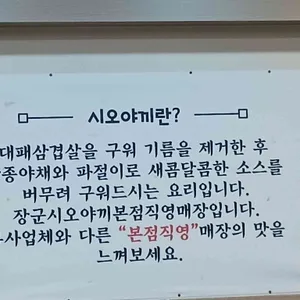 시오야끼란?
대패삼겹살을 구워 기름을 제거한 후
종야채와 파절이로 새콤달콤한 소스를
버무려 구워드시는 요리입니다.
장군시오야끼본점직영매장입니다.
사업체와 다른 "본점직영"매장의 맛을
느껴보세요.